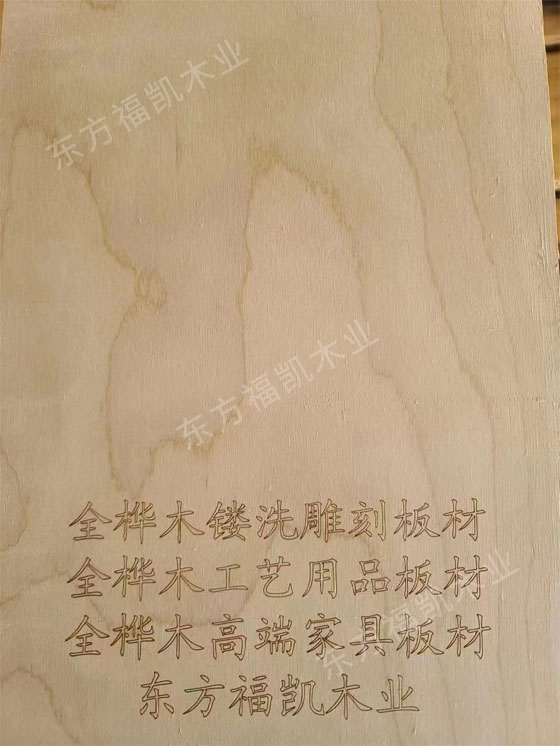 东方福凯木业
东方福凯木业
全桦木镂洗雕刻板材
全桦木工艺用品板材
全桦木高端家具板材
东方福凯木业
东方福凯木业